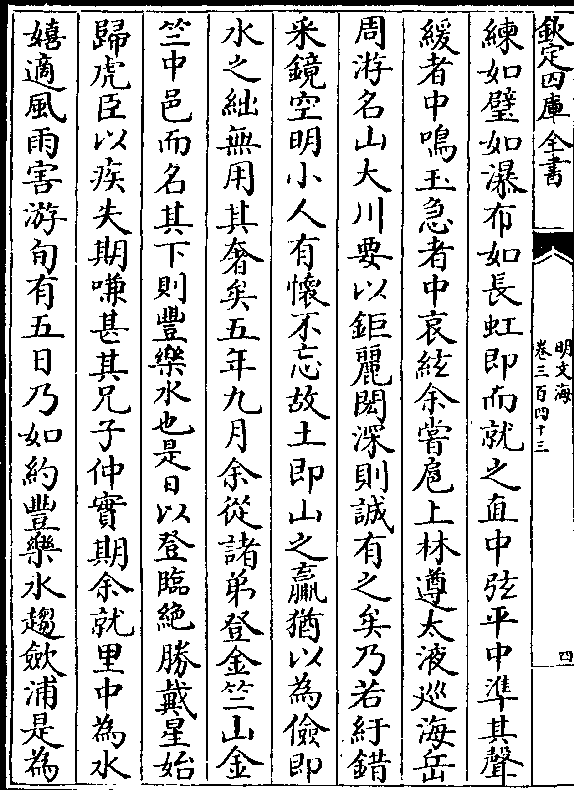 欽定四庫全書
明文海
卷三百四十三
四
練如璧如瀑布如長虹即而就之直中弦平中準其聲
緩者中鳴玉急者中哀絃余嘗扈上林遵太液巡海岳
周游名山大川要以鉅麗閎深則誠有之矣乃若紆錯
采鏡空明小人有懷不忘故土即山之羸猶以為儉即
水之絀無用其奢矣五年九月余從諸弟登金竺山金
竺中邑而名其下則豐樂水也是日以登臨絶勝戴星始
歸虎臣以疾失期嗛甚其兄子仲實期余就里中為水
嬉適風雨害游旬有五日乃如約豐樂水趨歛浦是為